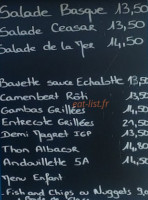 Salade Basque 13,50
Salade Ceasar 13,50
Salade de la Mer 14,50
Bavette sauce Echalotte 13,50
Camembert Rôti 13,50
eat-list.fr
Gambas Grillées 14,50
Entrecote Grillées 21,50
Demi Magret IGP 13,50
Thon Albacor 14,80
Andouillette 5A 14,50
Menu Enfant
Fish and Chips ou Nuggets 9,0